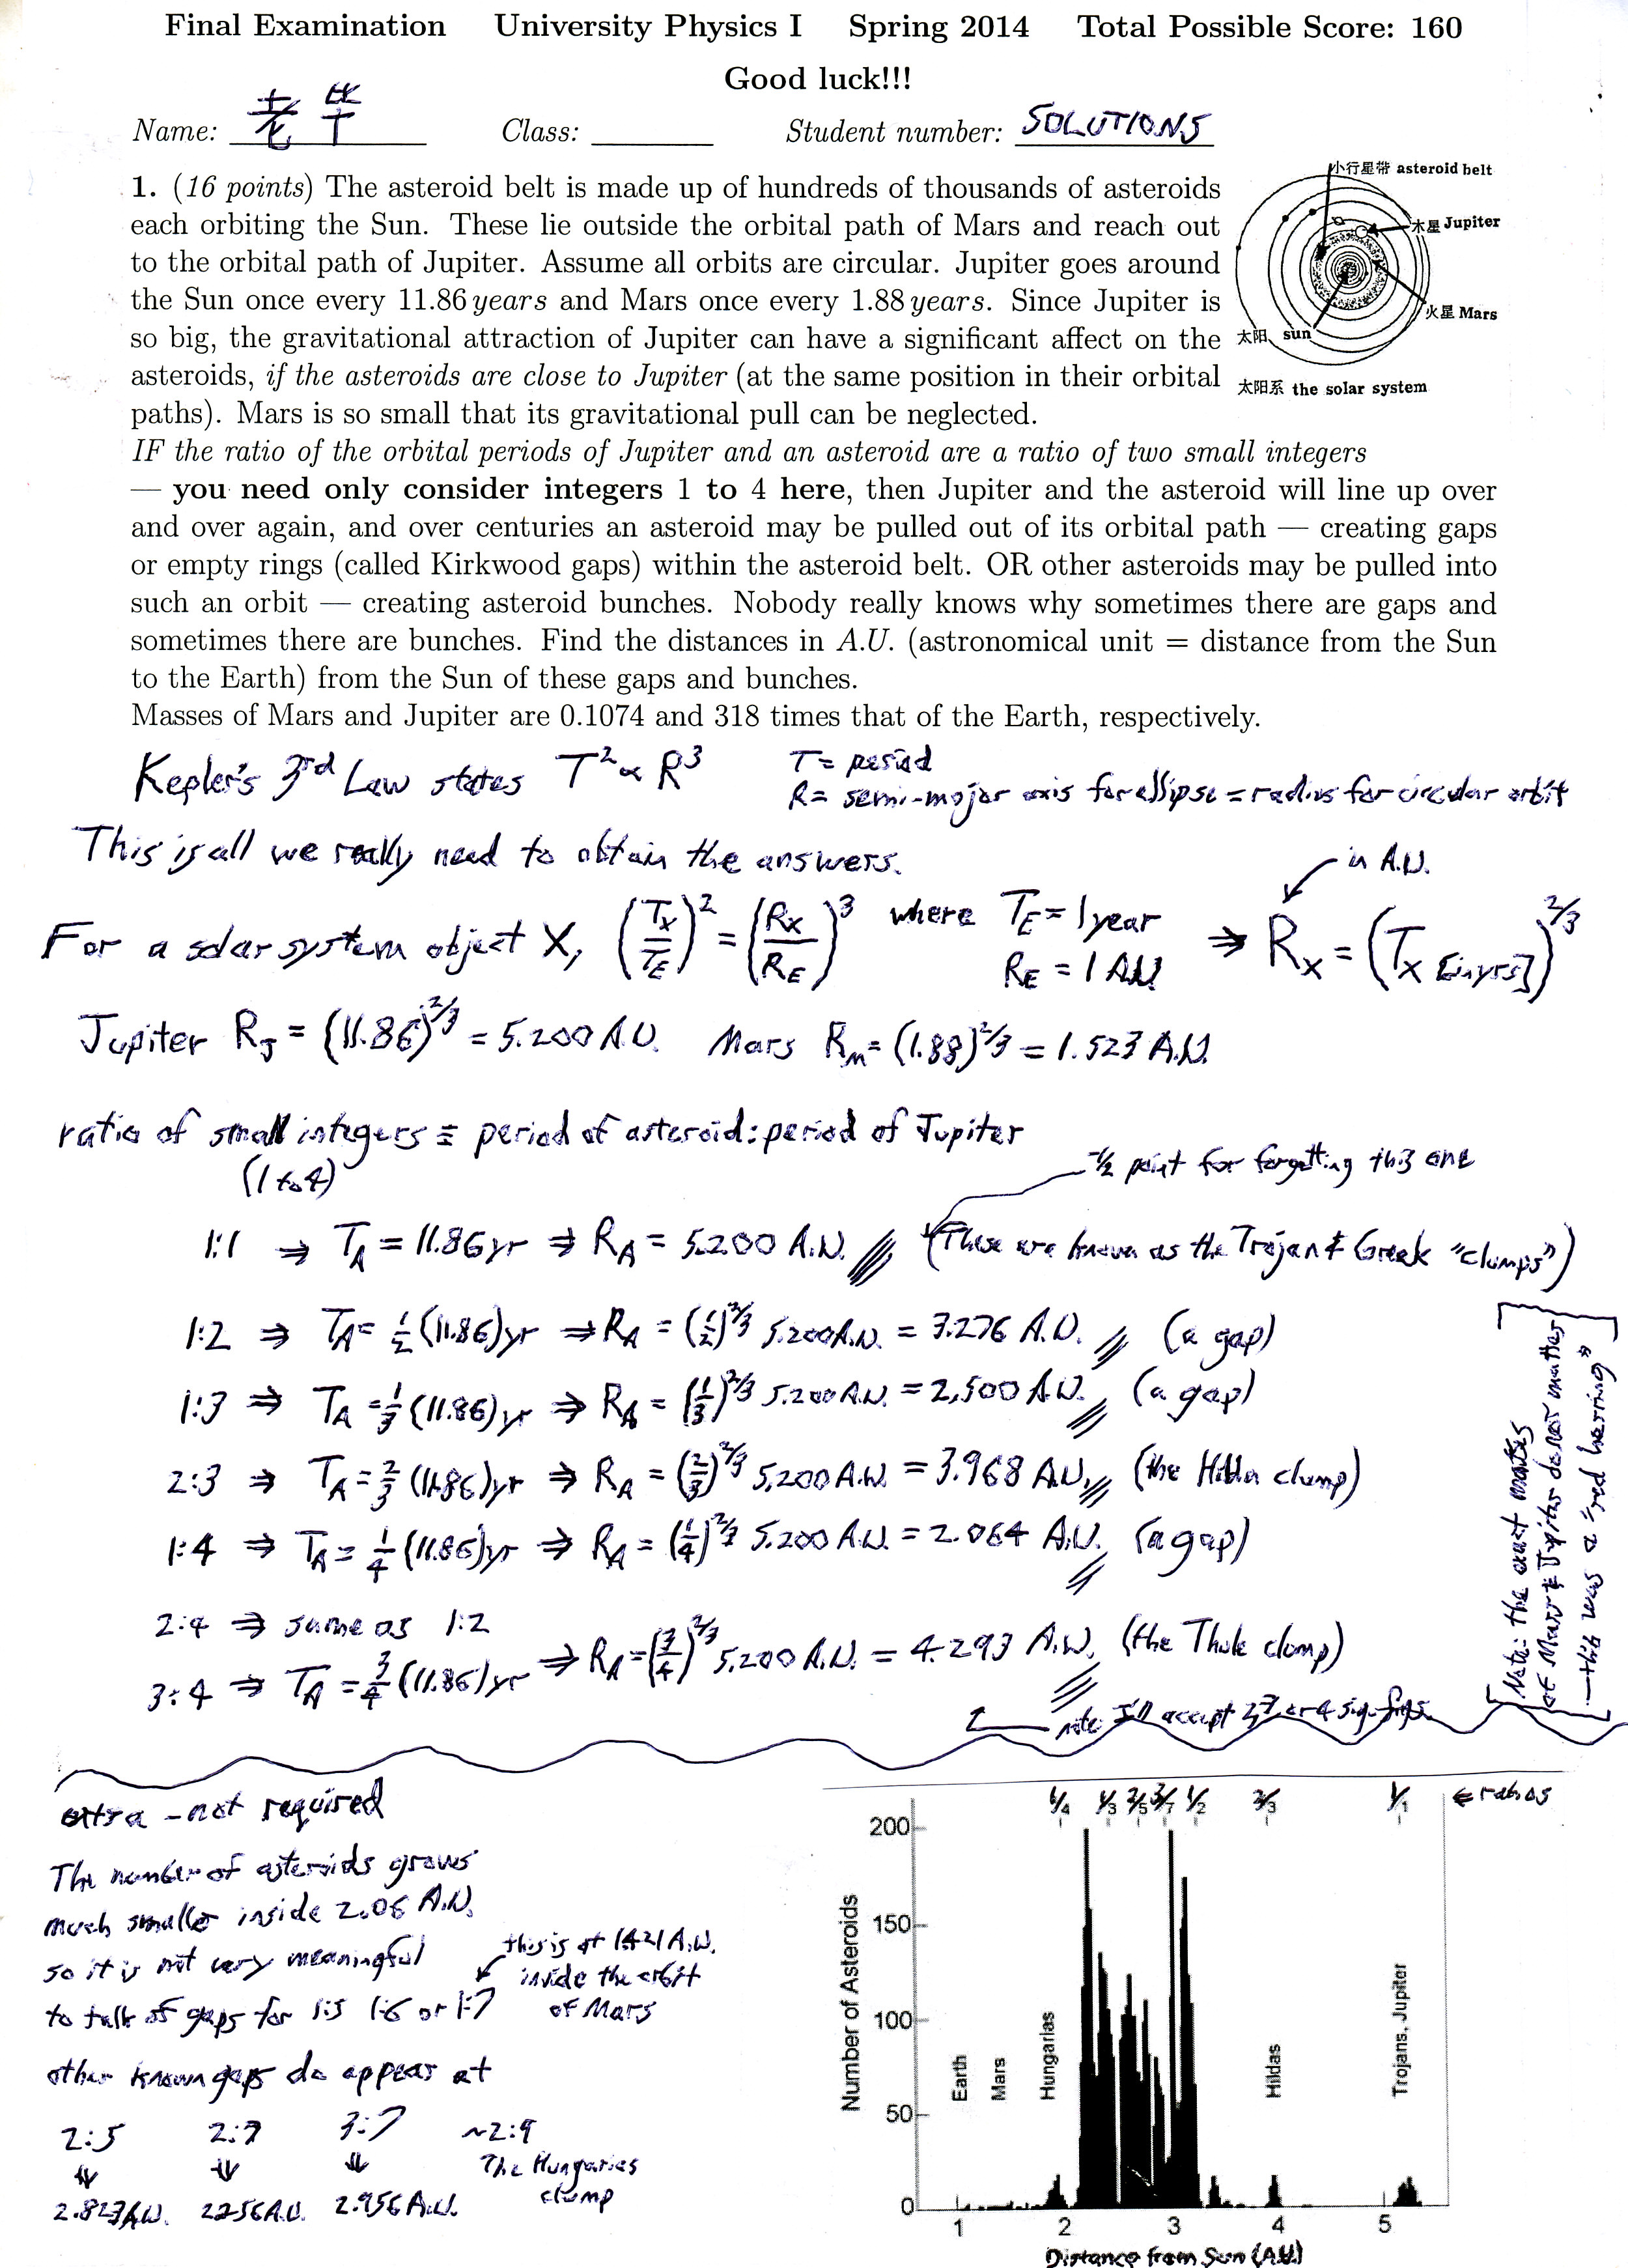 Final Examination University Physics I Spring 2014 Total Possible Score: 160
Good luck!!!
Name: 老毕 Class: Student number: SOLUTIONS
1. (16 points) The asteroid belt is made up of hundreds of thousands of asteroids
each orbiting the Sun. These lie outside the orbital path of Mars and reach out
to the orbital path of Jupiter. Assume all orbits are circular. Jupiter goes around
the Sun once every 11.86 years and Mars once every 1.88 years. Since Jupiter is
so big, the gravitational attraction of Jupiter can have a significant affect on the
asteroids, if the asteroids are close to Jupiter (at the same position in their orbital
paths). Mars is so small that its gravitational pull can be neglected.
小行星带 asteroid belt
木星 Jupiter
火星 Mars
太阳 sun
太阳系 the solar system
IF the ratio of the orbital periods of Jupiter and an asteroid are a ratio of two small integers
— you need only consider integers 1 to 4 here, then Jupiter and the asteroid will line up over
and over again, and over centuries an asteroid may be pulled out of its orbital path — creating gaps
or empty rings (called Kirkwood gaps) within the asteroid belt. OR other asteroids may be pulled into
such an orbit — creating asteroid bunches. Nobody really knows why sometimes there are gaps and
sometimes there are bunches. Find the distances in A.U. (astronomical unit = distance from the Sun
to the Earth) from the Sun of these gaps and bunches.
Masses of Mars and Jupiter are 0.1074 and 318 times that of the Earth, respectively.
Kepler's 3rd Law states T² ∝ R³ T = period
R = semi-major axis for ellipse = radius for circular orbit
This is all we really need to obtain the answers.
in A.U.
For a solar system object X, (Tx/TE)² = (Rx/RE)³ where TE = 1 year ⇒ Rx = (Tx [in yrs])^2/3
RE = 1 A.U.
Jupiter RJ = (11.86)^2/3 = 5.200 A.U. Mars Rm = (1.88)^2/3 = 1.523 A.U.
ratio of small integers ≡ period of asteroid : period of Jupiter
(1 to 4)
-½ point for forgetting this one
1:1 ⇒ TA = 11.86 yr ⇒ RA = 5.200 A.U. (These are known as the Trojan & Greek "clumps")
1:2 ⇒ TA = ½ (11.86) yr ⇒ RA = (½)^2/3 5.200 A.U. = 3.276 A.U. (a gap)
1:3 ⇒ TA = ⅓ (11.86) yr ⇒ RA = (⅓)^2/3 5.200 A.U. = 2.500 A.U. (a gap)
2:3 ⇒ TA = ⅔ (11.86) yr ⇒ RA = (⅔)^2/3 5.200 A.U. = 3.968 A.U. (the Hilda clump)
1:4 ⇒ TA = ¼ (11.86) yr ⇒ RA = (¼)^2/3 5.200 A.U. = 2.064 A.U. (a gap)
2:4 ⇒ same as 1:2
3:4 ⇒ TA = ¾ (11.86) yr ⇒ RA = (¾)^2/3 5.200 A.U. = 4.293 A.U. (the Thule clump)
note I'll accept 2,3 or 4 sig. figs.
Note: the exact masses
of Mars & Jupiter do not matter
— this was a "red herring"
extra – not required
The number of asteroids grows
much smaller inside 2.06 A.U.
so it is not very meaningful
to talk of gaps for 1:5 1:6 or 1:7
this is at 1.421 A.U.
inside the orbit
of Mars
other known gaps do appear at
2:5 2:7 3:7 ~2:9
⇓ ⇓ ⇓ The Hungarias
2.823 A.U. 2.256 A.U. 2.956 A.U. clump
1/4 1/3 2/5 3/7 1/2 2/3 1/1 ← ratios
Number of Asteroids
200
150
100
50
0
Earth
Mars
Hungarias
Hildas
Trojans, Jupiter
1 2 3 4 5
Distance from Sun (A.U.)